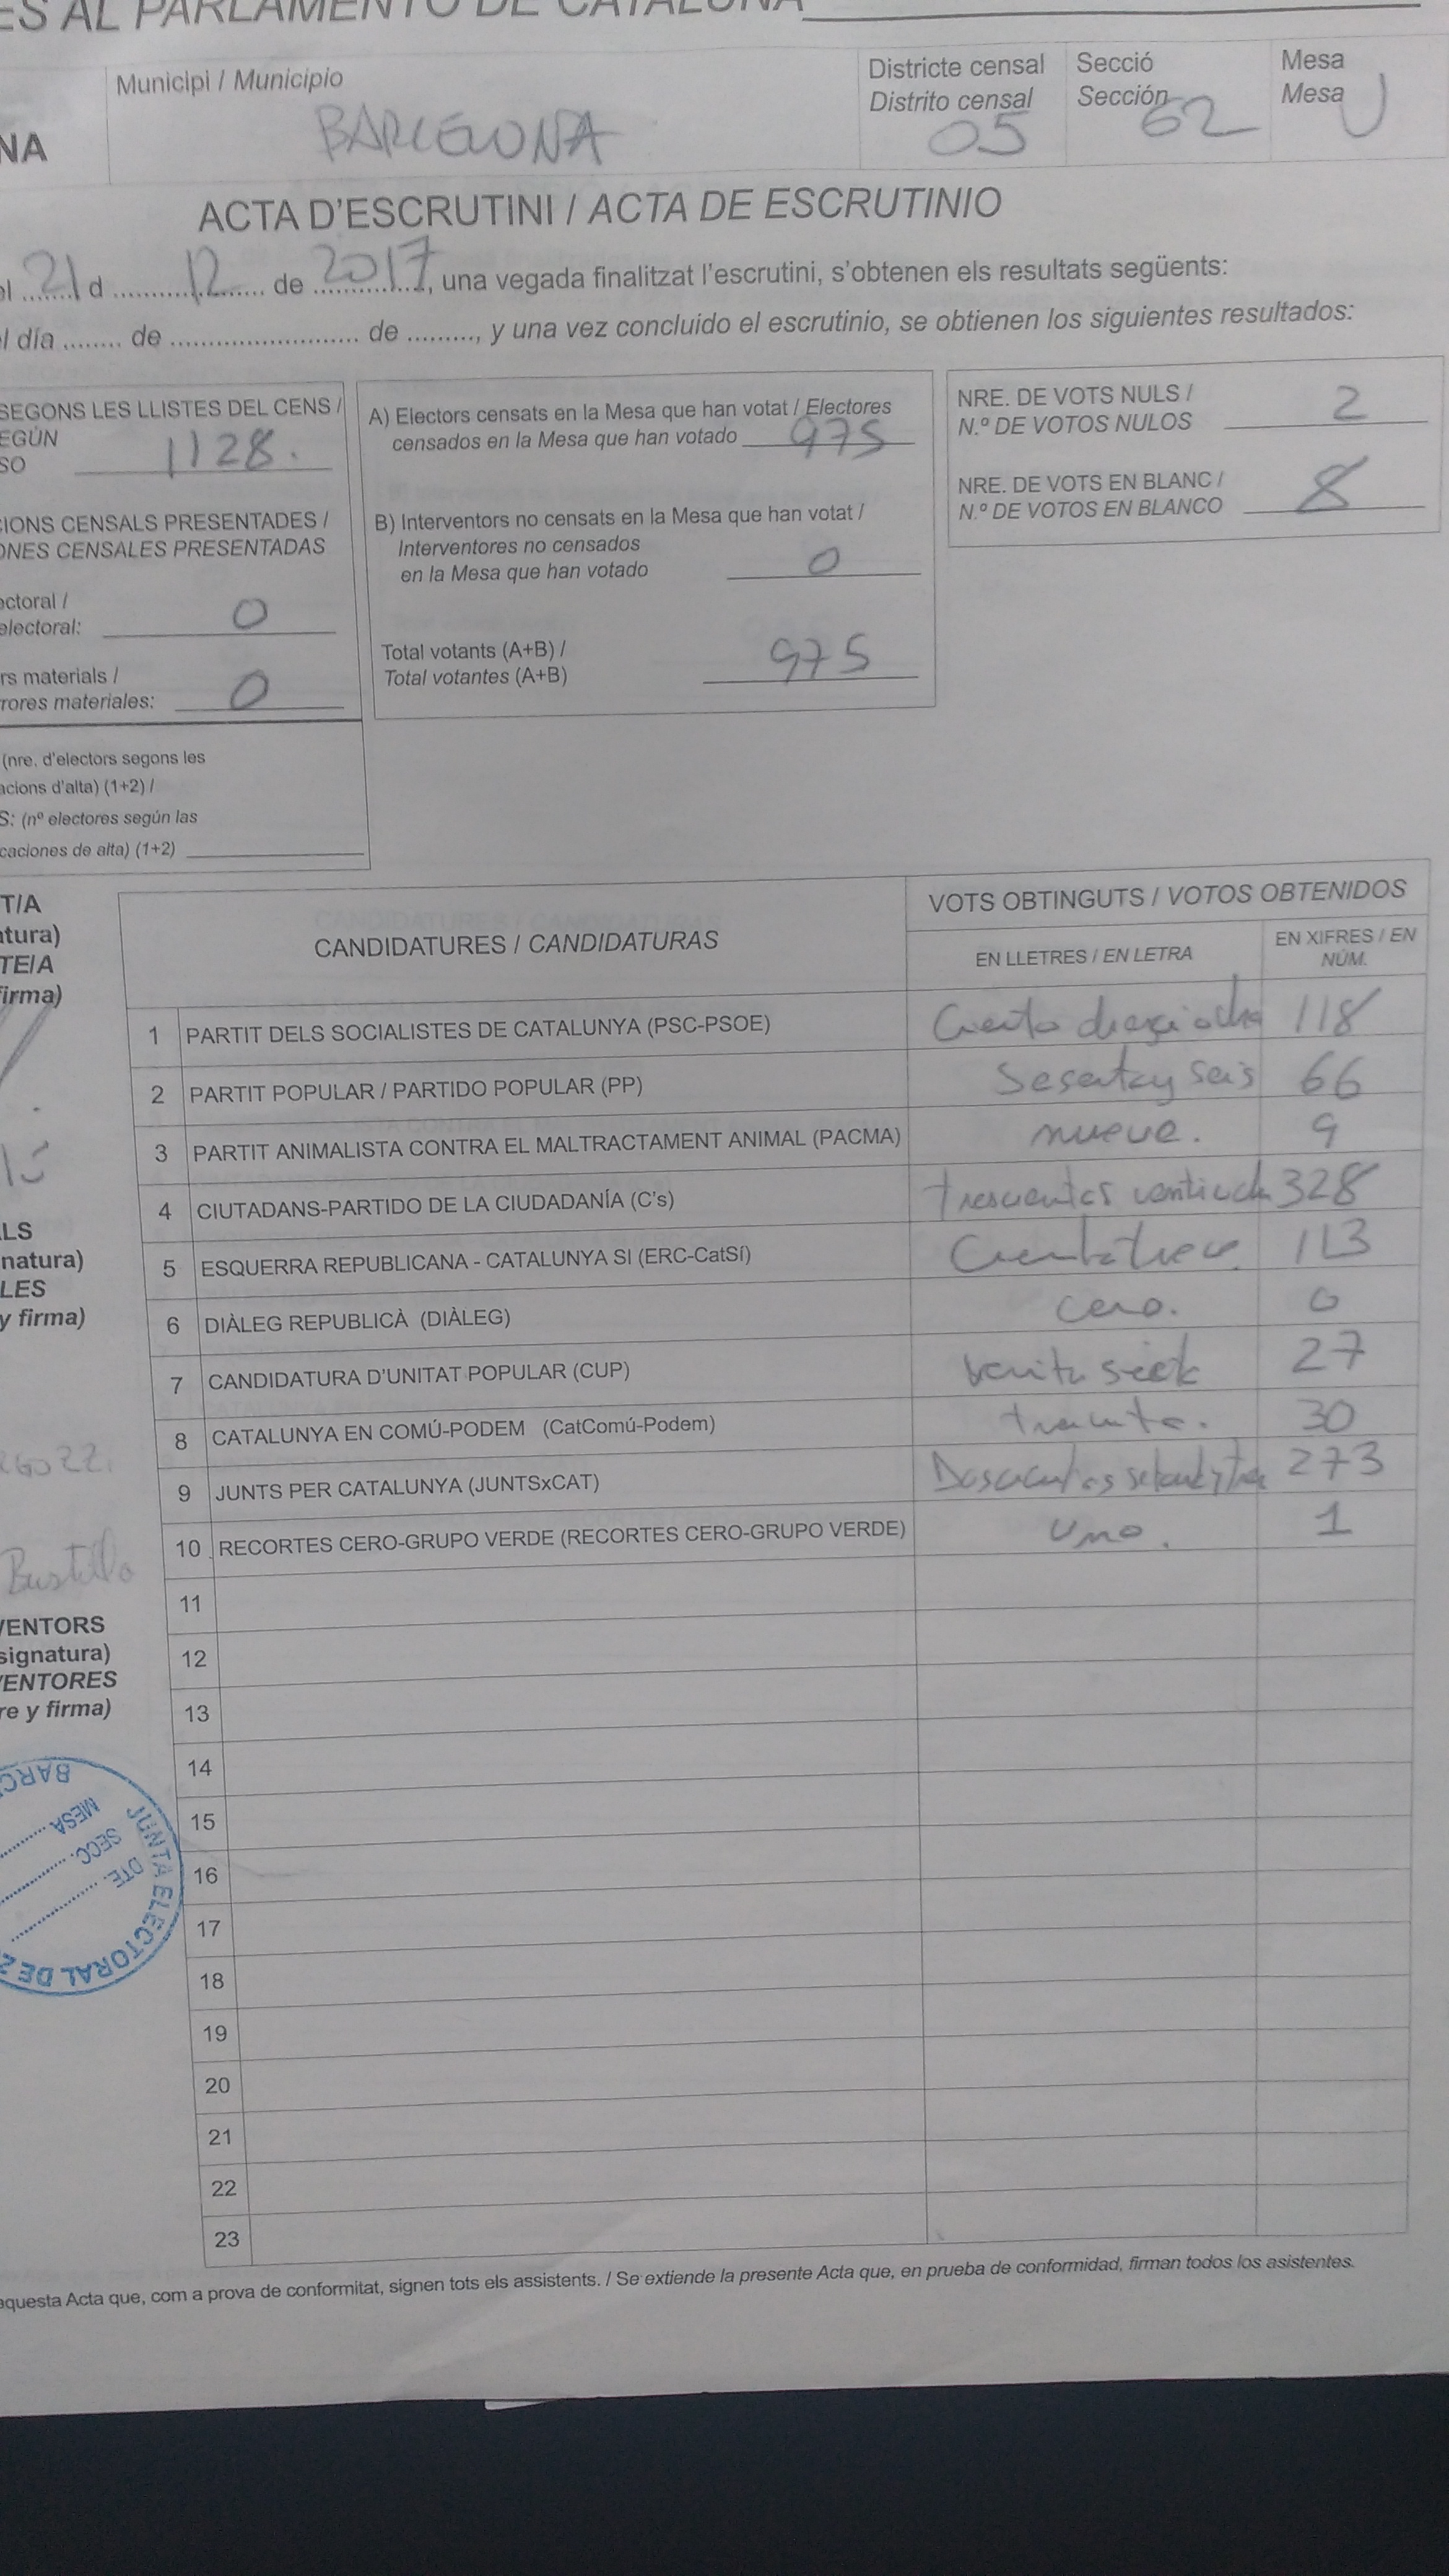 ES AL PARLAMENTO DE CATALUÑA
Municipi / Municipio
BARCELONA
Districte censal
Distrito censal
05
Secció
Sección
62
Mesa
Mesa
U
NA
ACTA D'ESCRUTINI / ACTA DE ESCRUTINIO
el 21 d 12 de 2017, una vegada finalitzat l'escrutini, s'obtenen els resultats següents:
el día ........ de .......................... de ........., y una vez concluido el escrutinio, se obtienen los siguientes resultados:
SEGONS LES LLISTES DEL CENS /
EGÚN
SO 1128.
CIONS CENSALS PRESENTADES /
ONES CENSALES PRESENTADAS
ectoral /
electoral: 0
rs materials /
rrores materiales: 0
(nre. d'electors segons les
acions d'alta) (1+2) /
S: (nº electores según las
caciones de alta) (1+2)
A) Electors censats en la Mesa que han votat / Electores
censados en la Mesa que han votado 975
B) Interventors no censats en la Mesa que han votat /
Interventores no censados
en la Mesa que han votado 0
Total votants (A+B) /
Total votantes (A+B) 975
NRE. DE VOTS NULS /
N.º DE VOTOS NULOS 2
NRE. DE VOTS EN BLANC /
N.º DE VOTOS EN BLANCO 8
T/A
atura)
TE/A
firma)
LS
natura)
LES
y firma)
Bustillo
VENTORS
signatura)
VENTORES
re y firma)
CANDIDATURES / CANDIDATURAS
VOTS OBTINGUTS / VOTOS OBTENIDOS
EN LLETRES / EN LETRA
EN XIFRES / EN
NÚM.
1 PARTIT DELS SOCIALISTES DE CATALUNYA (PSC-PSOE) Ciento 118
2 PARTIT POPULAR / PARTIDO POPULAR (PP) Sesentay seis 66
3 PARTIT ANIMALISTA CONTRA EL MALTRACTAMENT ANIMAL (PACMA) nueve. 9
4 CIUTADANS-PARTIDO DE LA CIUDADANÍA (C's) 328
5 ESQUERRA REPUBLICANA - CATALUNYA SI (ERC-CatSí) 113
6 DIÀLEG REPUBLICÀ (DIÀLEG) cero. 0
7 CANDIDATURA D'UNITAT POPULAR (CUP) 27
8 CATALUNYA EN COMÚ-PODEM (CatComú-Podem) 30
9 JUNTS PER CATALUNYA (JUNTSxCAT) 273
10 RECORTES CERO-GRUPO VERDE (RECORTES CERO-GRUPO VERDE) Uno. 1
11
12
13
14
15
16
17
18
19
20
21
22
23
BARC
MESA
SECC.
DTE.
JUNTA ELECTORAL DE
aquesta Acta que, com a prova de conformitat, signen tots els assistents. / Se extiende la presente Acta que, en prueba de conformidad, firman todos los asistentes.